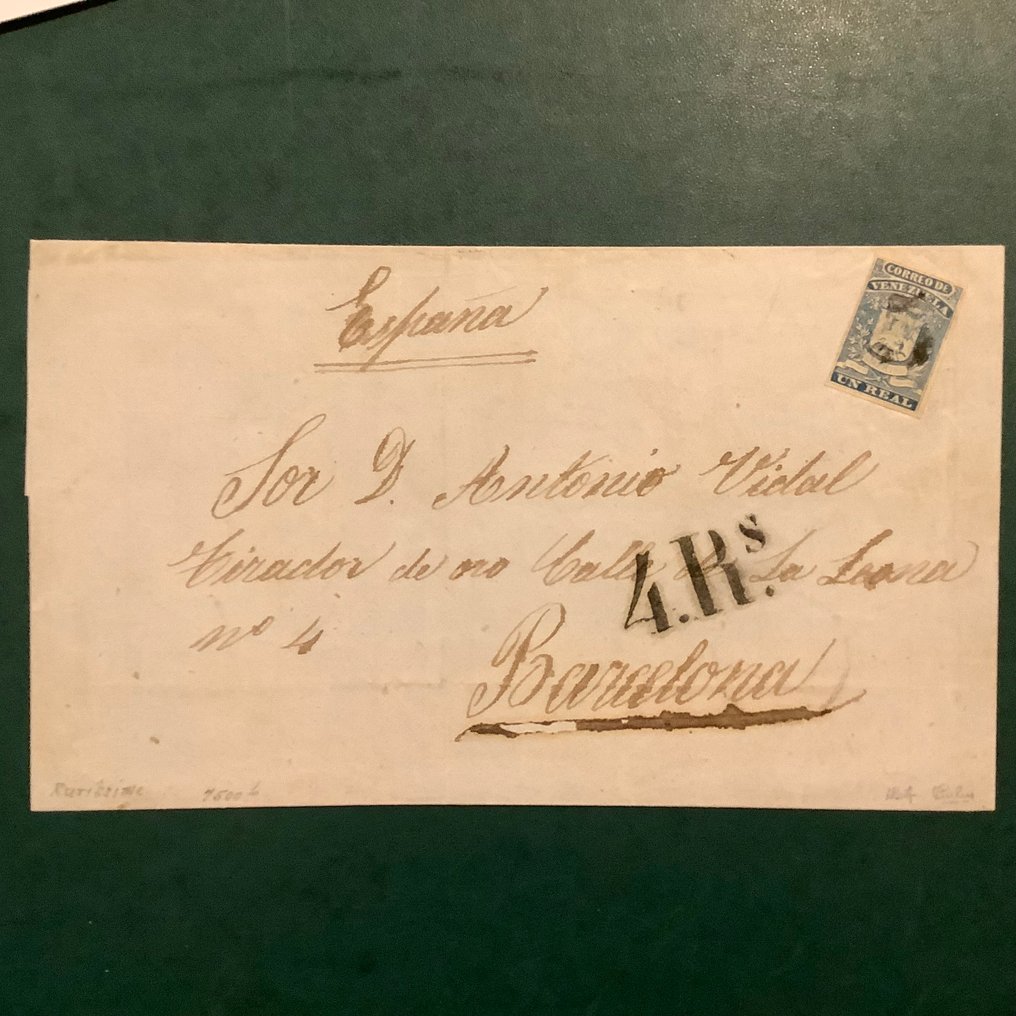 España
CORREO DE
VENEZUELA
UN REAL
Sor D. Antonio Vidal
Tirador de oro Calle La Leona
nº 4
4.Rs.
Barcelona
Rarissime 7500